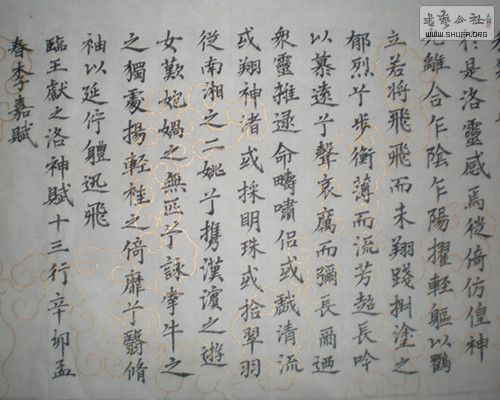 於是洛靈感焉徙倚仿偟神
光離合乍陰乍陽擢輕軀以鶴
立若將飛飛而未翔踐椒塗之
郁烈兮步衡薄而流芳超長吟
以慕遠兮聲哀厲而彌長爾迺
衆靈雜遝命疇嘯侶或戲清流
或翔神渚或採明珠或拾翠羽
從南湘之二姚兮攜漢濱之遊
女歎媧之無匹兮詠牽牛之
之獨處揚輕袿之倚靡兮翳脩
袖以延停體迅飛
臨王獻之洛神賦十三行辛卯孟
春李嘉賦
書藝公社
WWW.SHUFA.ORG